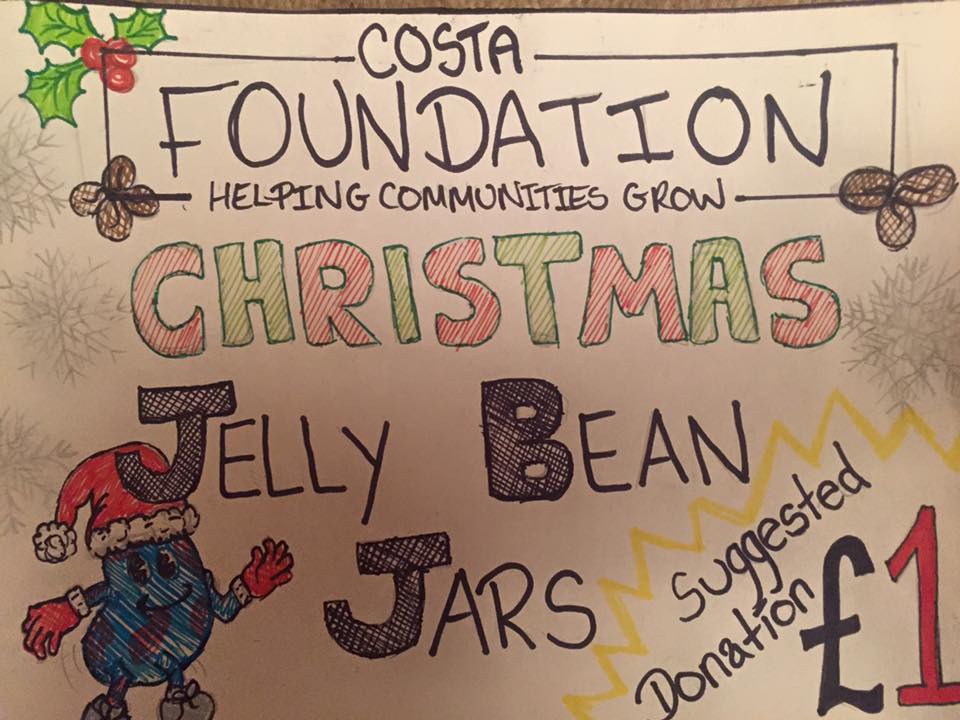 COSTA
FOUNDATION
HELPING COMMUNITIES GROW
CHRISTMAS
JELLY BEAN
JARS
Suggested
Donation
£1